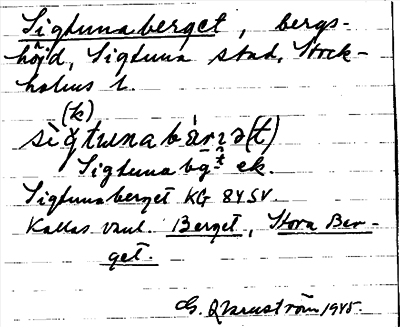 Sigtunaberget, bergs-
höjd, Sigtuna stad, Stock-
holms l.
(k)
sìgtuna bàrıə(t)
Sigtuna bgt ek.
Sigtunaberget KG 84SV.
Kallas vanl. Berget, Stora Ber-
get.
G. 1945.